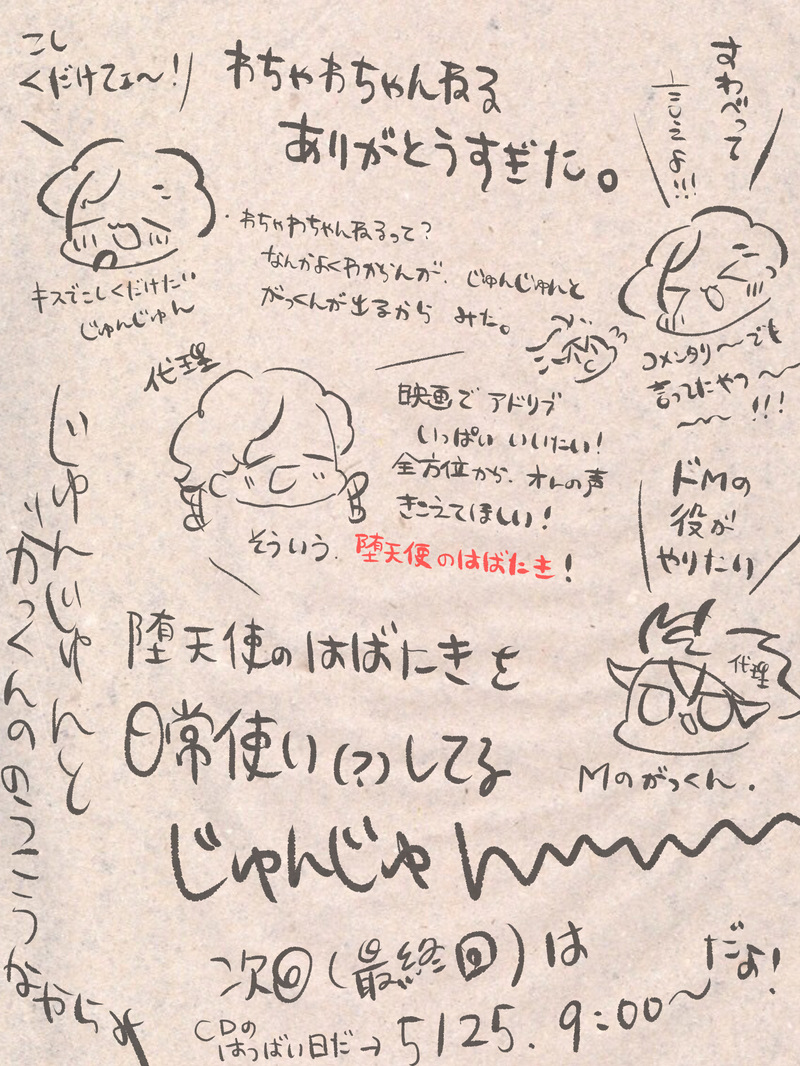 こし
くだけてェ〜!
わちゃわちゃんねる
ありがとうすぎた。
すわべって
言うよ!!!
・わちゃわちゃんねるって?
なんかよくわからんが、じゅんじゅんと
がっくんが出るから みた。
キスでこしくだけたい
じゅんじゅん
コメンタリ〜〜でも
言ってたやつ〜〜
〜〜!!!
代理
映画でアドリブ
いっぱい いいたい!
全方位から、オレの声
きこえてほしい!
そういう、堕天使のはばたき!
ドMの
役が
やりたい
代理
Mのがっくん.
じゅんじゅんと
がっくんの
なからよ
堕天使のはばたきを
日常使い(?)してる
じゅんじゅん〜〜〜
次回(最終回)は
5/25. 9:00〜だよ!
CDの
はつばい日だ→